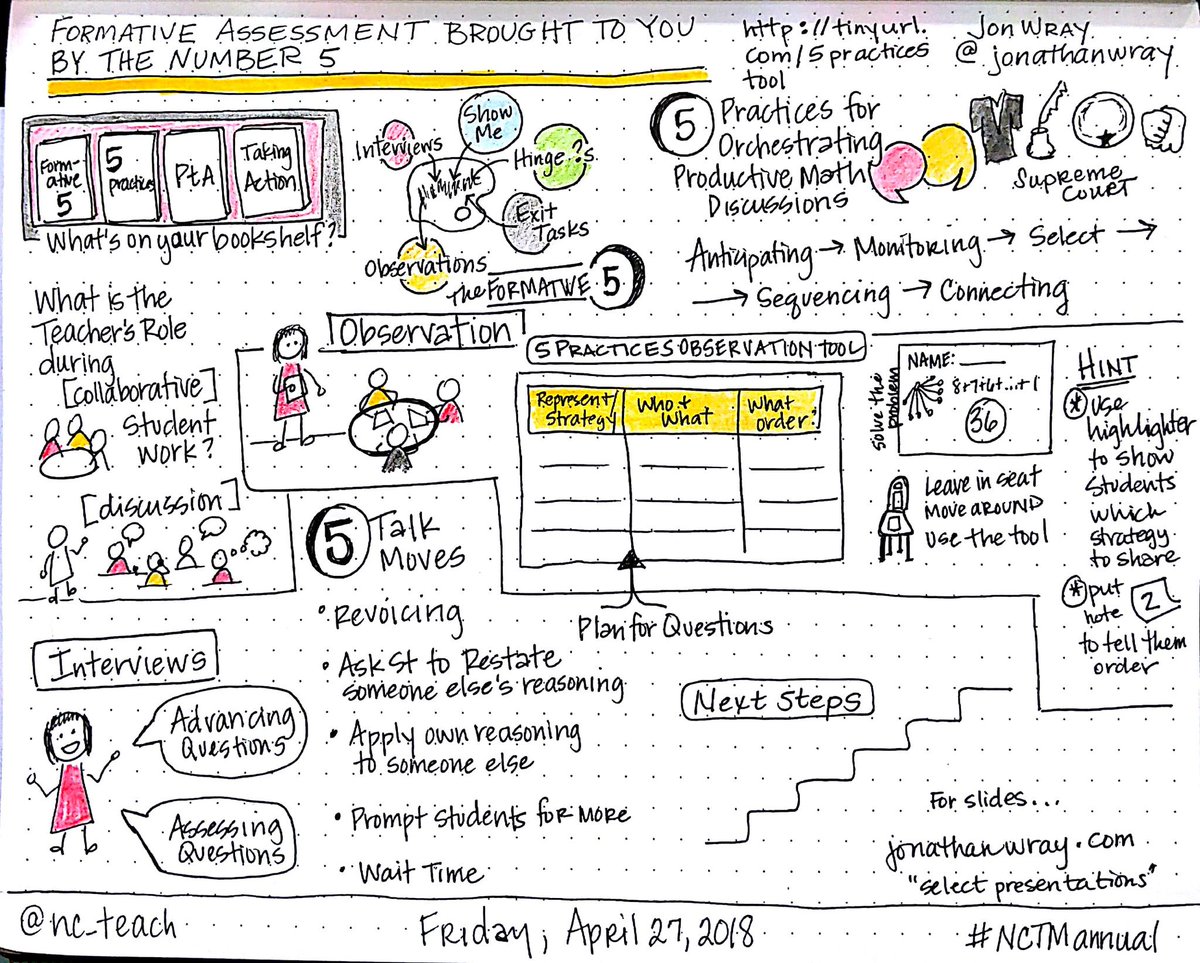 FORMATIVE ASSESSMENT BROUGHT TO YOU
BY THE NUMBER 5
http://tinyurl.
com/5practices
tool
Jon Wray
@jonathanwray
Form-
ative
5
5
practices
PtA
Taking
Action
What's on your bookshelf?
Interviews
Show
Me
Hinge ?s
Exit
Tasks
Observations
the FORMATIVE 5
5 Practices for
Orchestrating
Productive Math
Discussions
Supreme
Court
Anticipating → Monitoring → Select →
→ Sequencing → Connecting
What is the
Teacher's Role
during
[collaborative]
Student
work?
[discussion]
Observation
5 PRACTICES OBSERVATION TOOL
Represent/
Strategy
Who +
What
What
order?
Plan for Questions
solve the
problem
NAME:
8+7+6+...+1
36
Leave in seat
move around
use the tool
HINT
* use
highlighter
to show
students
which
strategy
to share
* put
note 2
to tell them
order
5 Talk
Moves
• Revoicing
• Ask St to Restate
someone else's reasoning
• Apply own reasoning
to someone else
• Prompt students for more
• Wait Time
Interviews
Advancing
Questions
Assessing
Questions
Next Steps
For slides...
jonathanwray.com
"select presentations"
@nc_teach
Friday, April 27, 2018
#NCTMannual